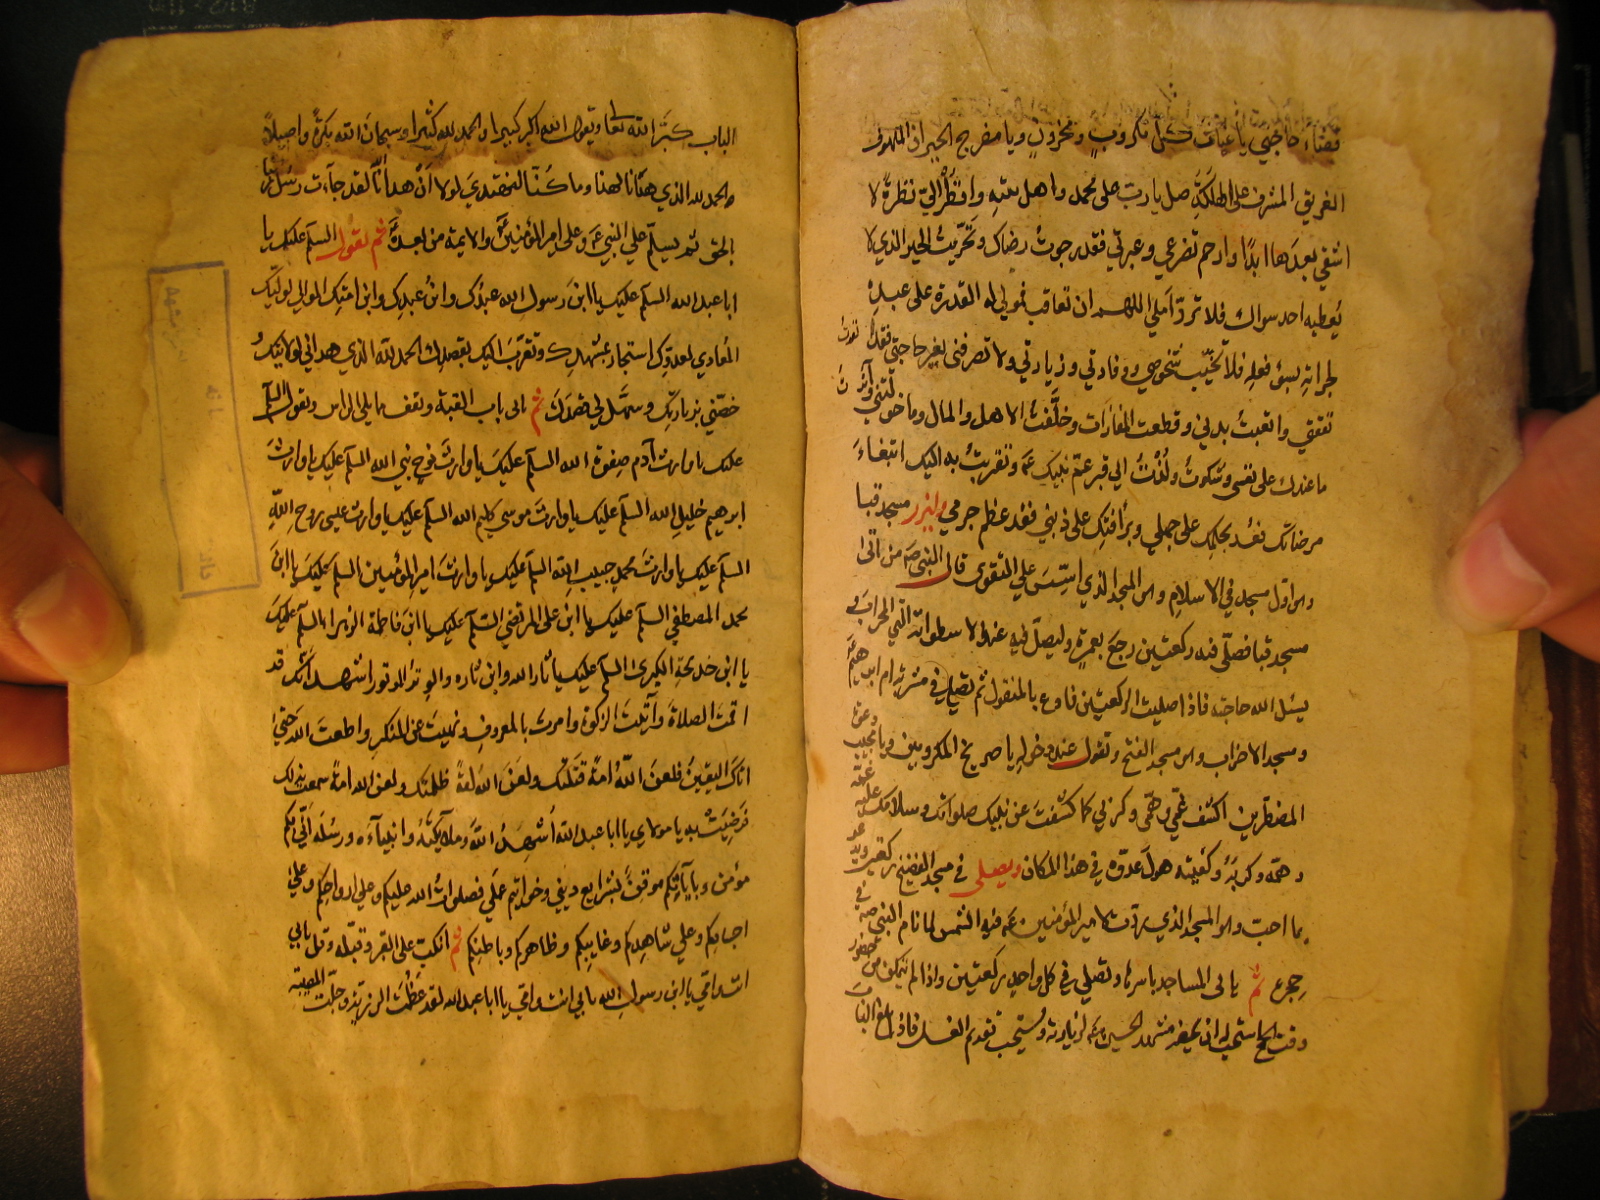 بقضاء حاجتي يا غياث كل مكروب ومحزون ويا مفرج الحيران الملهوف
الغريق المشرف على الهلكة صل يا رب على محمد واهل بيته وانظر الي نظرة لا
اشقي بعدها ابدا وارحم تضرعي وعبرتي فقد رجوت رضاك وتحريت الخير الذي لا
يعطيه احد سواك فلا ترد املي اللهم ان تعاقب فمولى له القدرة على عبده
بسوء فعله فلا تخيب شخوصي ووفادتي وزيارتي ولا تصرفني بغير حاجتي فقد
نفقتي واتعبت بدني وقطعت المفازات وخلفت الاهل والمال وما خولتني وآثرت
ما عندك على نفسي ولذت الى قبر عم نبيك وتقربت به اليك ابتغاء
مرضاتك فعد بحلمك على جهلي وبرأفتك على ذنبي فقد عظم جرمي وليزر مسجد قبا
وهو اول مسجد في الاسلام وهو المسجد الذي اسس على التقوى قال النبي ص من اتى
مسجد قبا فصلى فيه ركعتين رجع بعمرة وليصل فيه عند الاسطوانة التي المحراب
يسئل الله حاجته فاذا صليت الركعتين فادع بالمنقول ثم تصلي في مشربة ام ابراهيم
ومسجد الاحزاب وهو مسجد الفتح وتقول عند دخوله يا صريخ المكروبين ويا مجيب
المضطرين اكشف غمي وهمي وكربي كما كشفت عن نبيك صلواتك وسلامك عليه
وهمه وكربه وكفيته هول عدوه في هذا المكان ويصلي في مسجد الفضيخ ركعتين
بما احب وهو المسجد الذي ردت لامير المؤمنين فيه الشمس لما نام النبي ص في
حجره ثم ياتي المساجد باسرها وتصلي في كل واحد ركعتين واذا لم يتمكن من حضور
وقت الحج استحب له ان يحضر مشهد الحسين لزيارته ويستحب تقديم الغسل فاذا بلغ الباب
الباب كبر الله تعالى وتقول الله اكبر كبيرا والحمد لله كثيرا وسبحان الله بكرة واصيلا
والحمد لله الذي هدانا لهذا وما كنا لنهتدي لولا ان هدانا الله لقد جاءت رسل ربنا
بالحق ثم يسلم على النبي وعلى امير المؤمنين والائمة من بعده ثم تقول السلم عليك يا
ابا عبد الله السلم عليك يا ابن رسول الله عبدك وابن عبدك وابن امتك الموالي لوليك
المعادي لعدوك استجار بمشهدك وتقرب اليك بقصدك الحمد لله الذي هداني لولايتك
خصني بزيارتك وسهل لي قصدك ثم ياتي باب القبة وتقف مما يلي الراس وتقول السلم
عليك يا وارث آدم صفوة الله السلم عليك يا وارث نوح نبي الله السلم عليك يا وارث
ابرهيم خليل الله السلم عليك يا وارث موسى كليم الله السلم عليك يا وارث عيسى روح الله
السلم عليك يا وارث محمد حبيب الله السلم عليك يا وارث امير المؤمنين السلم عليك يا ابن
محمد المصطفي السلم عليك يا ابن علي المرتضي السلم عليك يا ابن فاطمة الزهراء السلم عليك
يا ابن خديجة الكبرى السلم عليك يا ثار الله وابن ثاره والوتر الموتور اشهد انك قد
اقمت الصلاة وآتيت الزكوة وامرت بالمعروف ونهيت عن المنكر واطعت الله حتى
اتاك اليقين فلعن الله امة قتلتك ولعن الله امة ظلمتك ولعن الله امة سمعت بذلك
فرضيت به يا مولاي يا ابا عبد الله اشهد الله وملائكته وانبياءه ورسله اني بكم
مؤمن وبايابكم موقن بشرايع ديني وخواتيم عملي فصلوات الله عليكم وعلى ارواحكم وعلى
اجسادكم وعلى شاهدكم وغايبكم وظاهركم وباطنكم ثم انكب على القبر وقبله وقل بابي
انت وامي يا ابن رسول الله بابي انت وامي يا ابا عبد الله لقد عظمت الرزية وجلت المصيبة